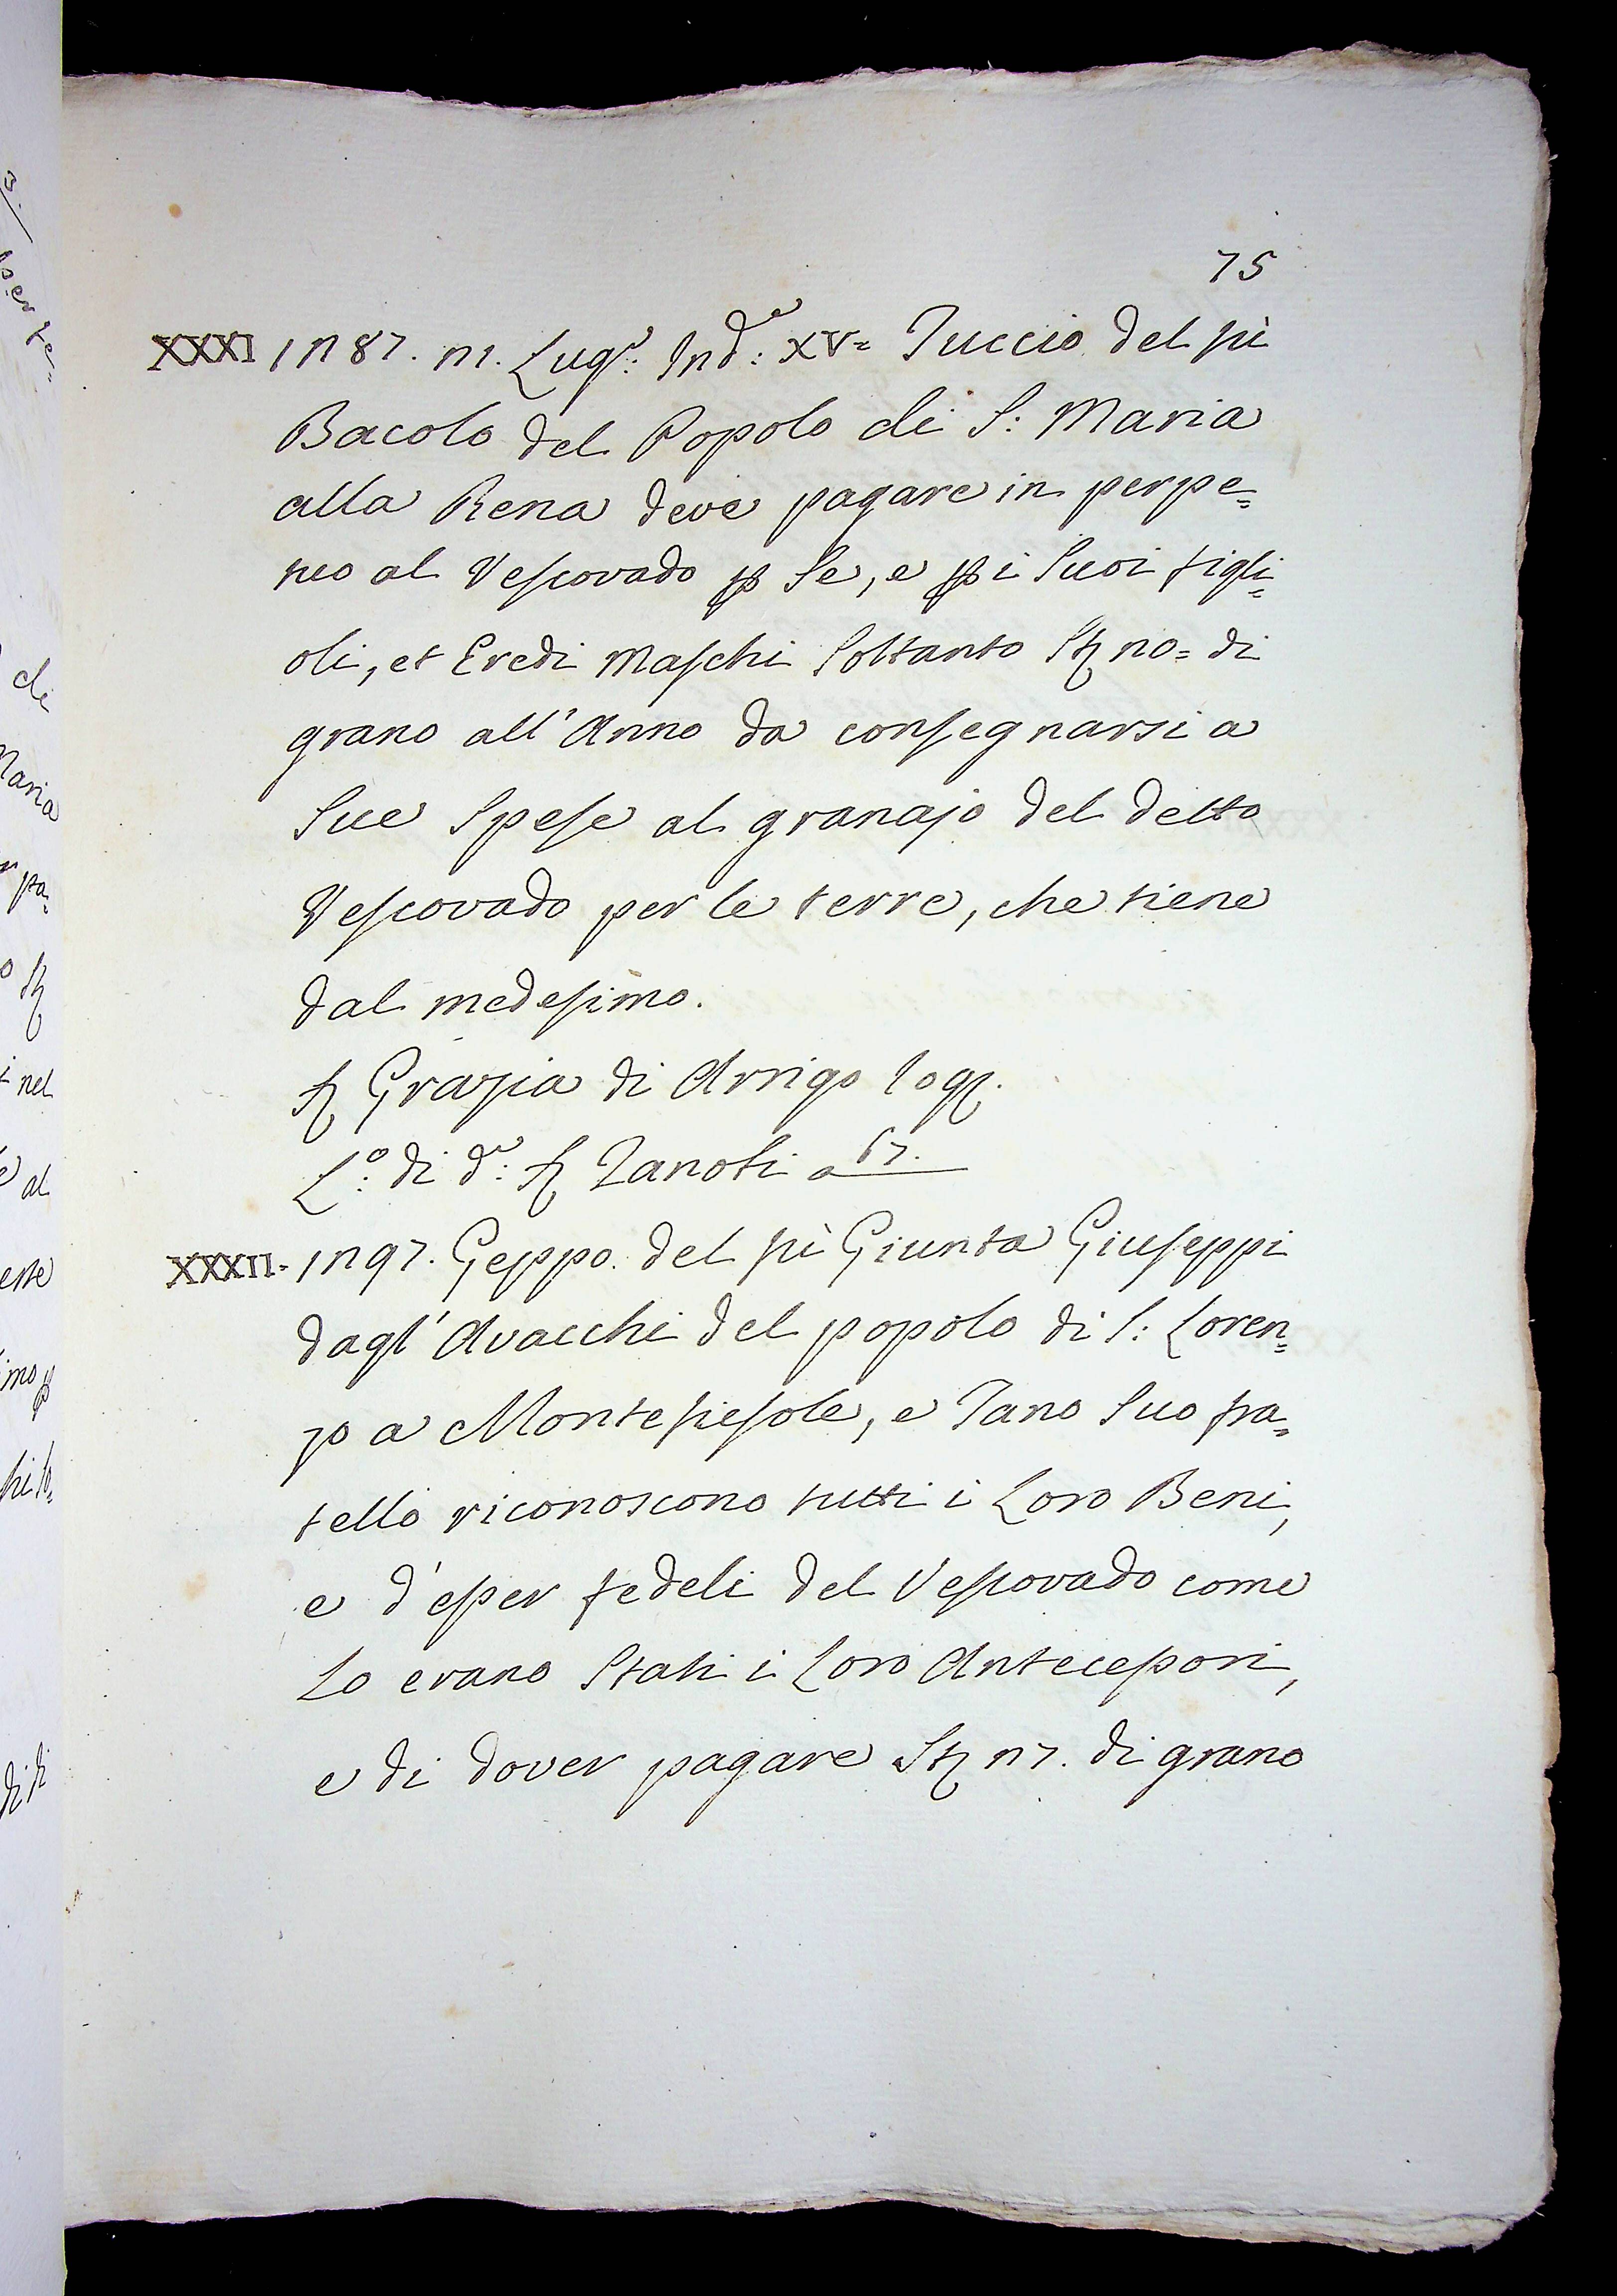 75
XXXI 1287. 21. Lugº: Indº: XV= Tuccio del fù
Bacolo del Popolo di S: Maria
alla Rena deve pagare in perpe=
tuo al Vescovado p Se, e p i Suoi figli=
oli, et Eredi Maschi Soltanto Stª 20= di
grano all'Anno da consegnarsi a
Sue Spese al granajo del detto
Vescovado per le terre, che tiene
dal medesimo.
Sr Grazia di Arrigo rogº.
Lº: di dº: Sr Zanobi a 67.
XXXII= 1297. Geppo del fù Giunta Giuseppi
dagl'Avacchi del popolo di S: Loren=
zo a Montefiesole, e Jano Suo fra=
tello riconoscono tutti i Loro Beni,
e d'esser fedeli del Vescovado come
Lo erano Stati i Loro Antecessori,
e di dover pagare Stª 27. di grano